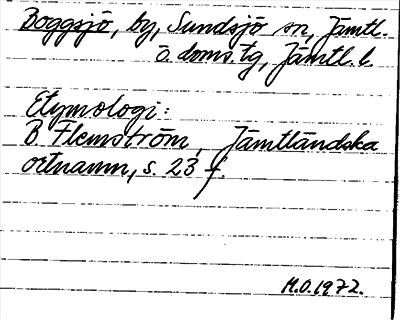 Boggsjö, by, Sundsjö sn, Jämtl.
ö. doms.tg, Jämtl. l.
Etymologi:
B. Flemström, Jämtländska
ortnamn, s. 23 f.
M.O. 1972.